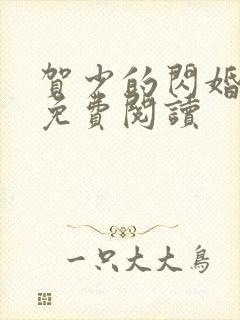 賀少的閃婚
免費閱讀
一只大大鳥